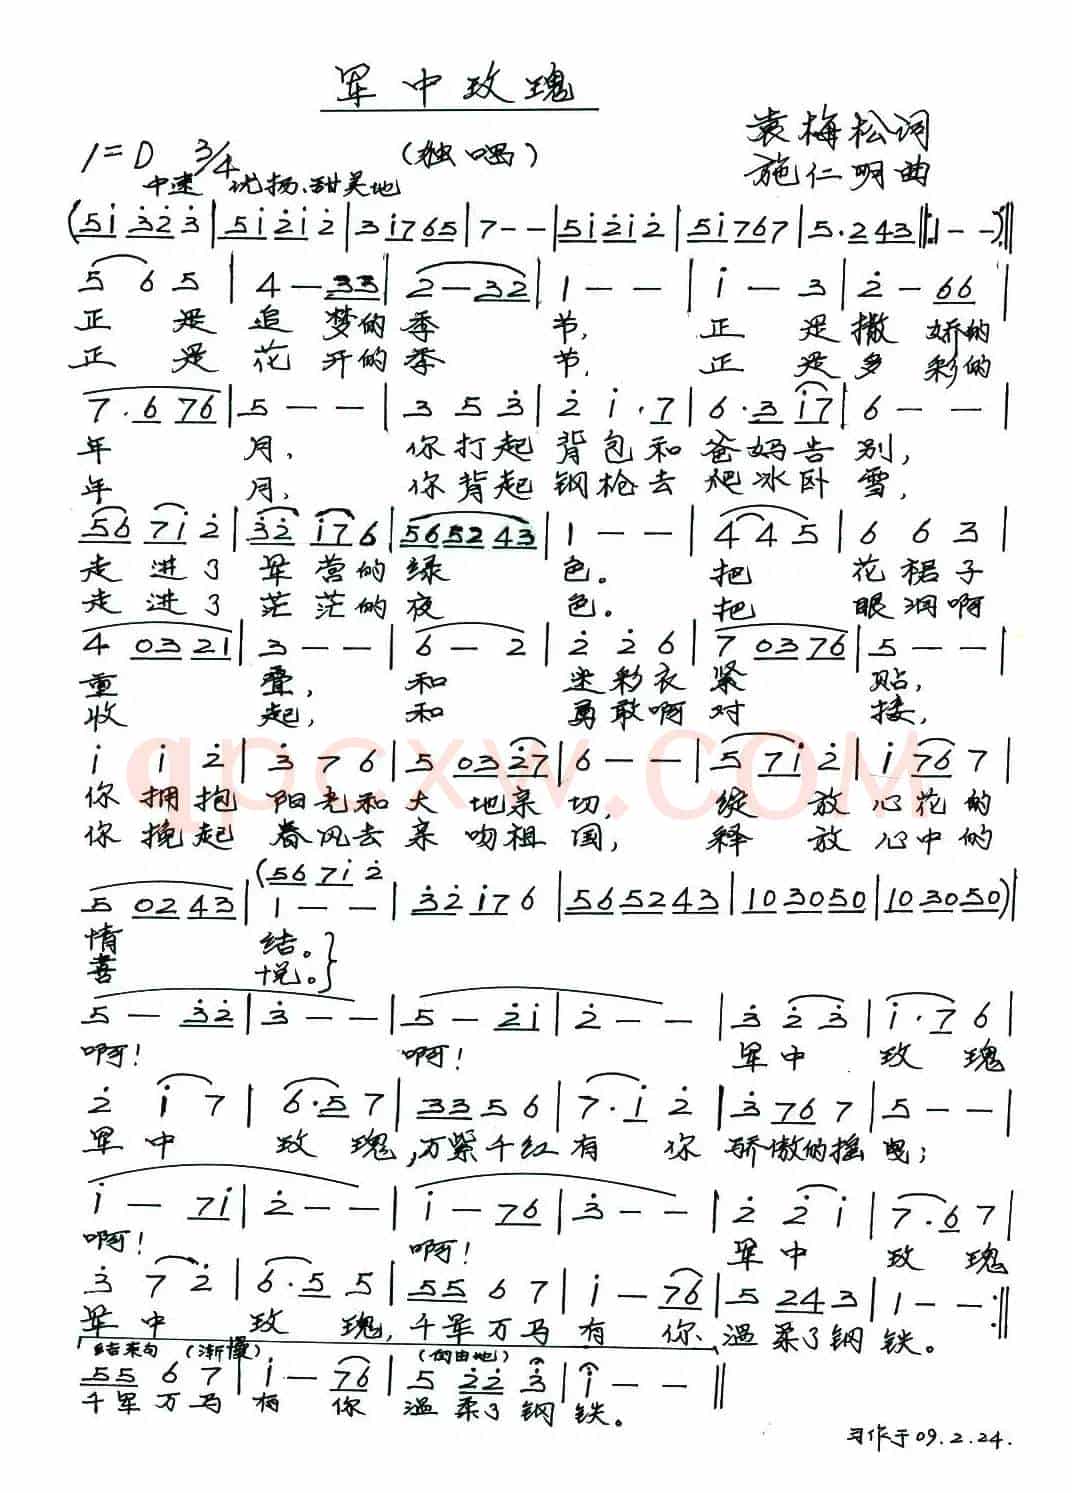 军中玫瑰
1=D 3/4 (独唱) 袁梅松词
中速 优扬、甜美地 施仁明曲
(5i 3̇2̇ 3̇ | 5i 2̇i 2̇ | 3 i765 | 7 - - | 5i2̇i 2̇ | 5i767 | 5·243 ‖: 1 - - ) :‖
5 6 5 | 4 - 33 | 2 - 32 | 1 - - | i - 3 | 2̇ - 66 |
正 是 追 梦的 季 节, 正 是 撒 娇的
正 是 花 开的 季 节, 正 是 多 彩的
7·6 76 | 5 - - | 3 5 3̇ | 2̇ i·7 | 6·3 i7 | 6 - - |
年 月, 你打起 背包和 爸妈告 别,
年 月, 你背起 钢枪去 爬冰卧 雪,
56 7i 2̇ | 3̇2̇ i76 | 565243 | 1 - - | 4 4 5 | 6 6 3 |
走 进了 军 营的 绿 色。 把 花裙子
走 进了 茫 茫的 夜 色。 把 眼泪啊
4 0321 | 3 - - | 6 - 2 | 2̇ 2̇ 6 | 7 0376 | 5 - - |
重 叠, 和 迷彩衣 紧 贴,
收 起, 和 勇敢啊 对 接,
i i 2̇ | 3̇ 7 6 | 5 032̇7 | 6 - - | 5 7i 2̇ | i 76 7 |
你 拥抱 阳光和 大 地亲 切, 绽 放 心花的
你 挽起 春风去 亲 吻祖 国, 释 放 心中的
(56 7i 2̇
5 0243 | 1 - - | 3̇2̇ i7 6 | 565243 | 103050 | 103050) |
情 结。}
喜 悦。}
5 - 3̇2̇ | 3̇ - - | 5 - 2̇i | 2̇ - - | 3̇ 2̇ 3̇ | i·7 6 |
啊! 啊! 军 中 玫 瑰
2̇ i 7 | 6·5 7 | 33 5 6 | 7·i 2̇ | 3̇ 76 7 | 5 - - |
军 中 玫 瑰,万紫千红 有 你 骄傲的摇 曳;
i - 7i | 2̇ - - | i - 76 | 3̇ - - | 2̇ 2̇ i | 7·6 7 |
啊! 啊! 军 中 玫 瑰
3̇ 7 2̇ | 6·5 5 | 55 6 7 | i - 76 | 5 243 | 1 - - :‖
军 中 玫 瑰,千军万马 有 你、温柔了钢 铁。
结束句 (渐慢) (自由地)
55 6 7 | i - 76 | 5 2̇2̇ 3̇ | i - - ‖
千军 万 马 有 你 温 柔了 钢 铁。
习作于09.2.24.
qpcxw.COM